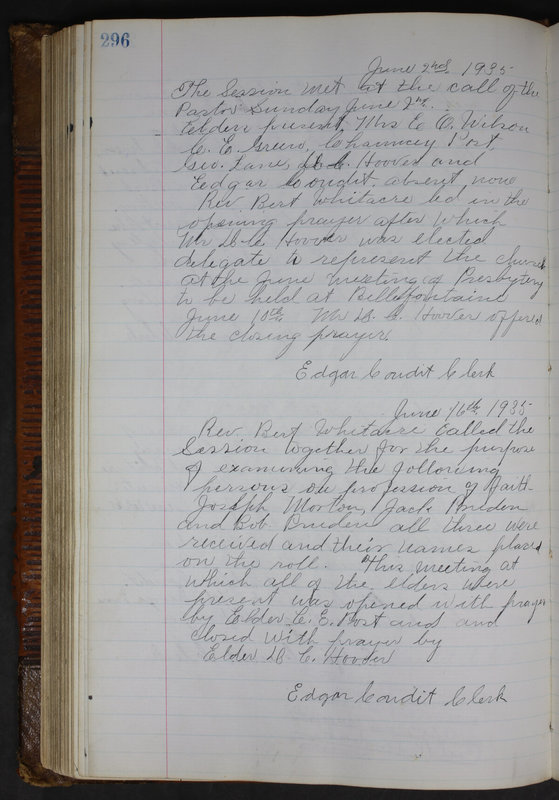 296
June 2nd 1935
The Session met at the call of the
Pastor Sunday June 2nd.
Elders present, Mrs E. O. Wilson
C. E. Green, Chauncey Post
Geo. Lane, D. C. Hoover and
Eedgar Condit. absent, none
Rev. Bert Whitacre led in the
opening prayer after which
Mr D. C. Hoover was elected
delegate to represent the church
at the June meeting of Presbytery
to be held at Bellefontaine
June 10th Mr D. C. Hoover offered
the closing prayer.
Edgar Condit Clerk
June 16th 1935
Rev. Bert Whitacre called the
Session together for the purpose
of examining the following
persons on profession of faith
Joseph Morton, Jack Pruden
and Bob Pruden all three were
received and their names placed
on the roll. This meeting at
which all of the elders were
present was opened with prayer
by Elder C. E. Post and and
closed with prayer by
Elder D. C. Hoover
Edgar Condit Clerk